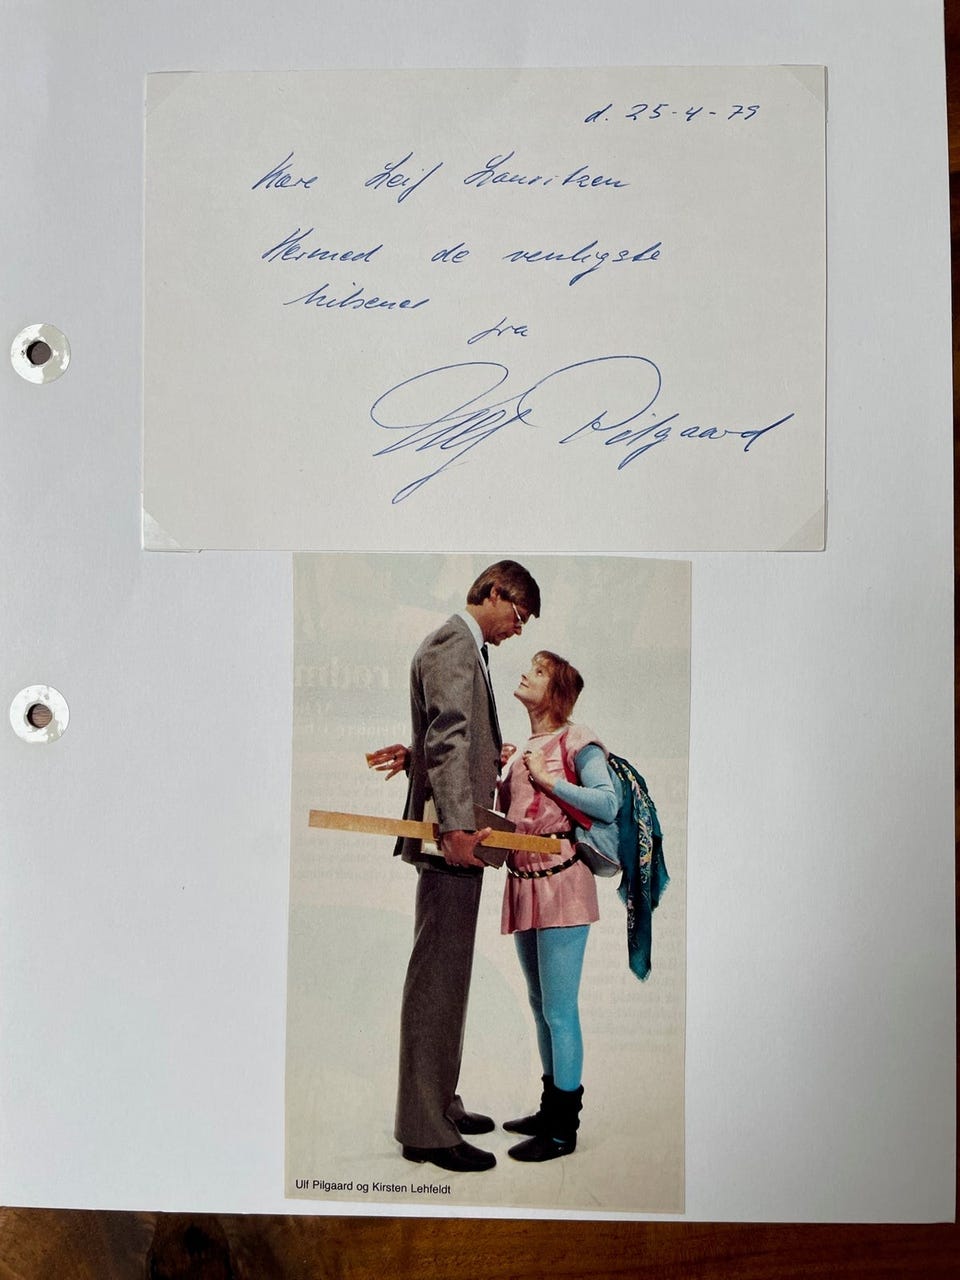 d. 25-4-79
Kære Leif Lauritzen
Hermed de venligste
hilsener
fra
Ulf Pilgaard
Ulf Pilgaard og Kirsten Lehfeldt